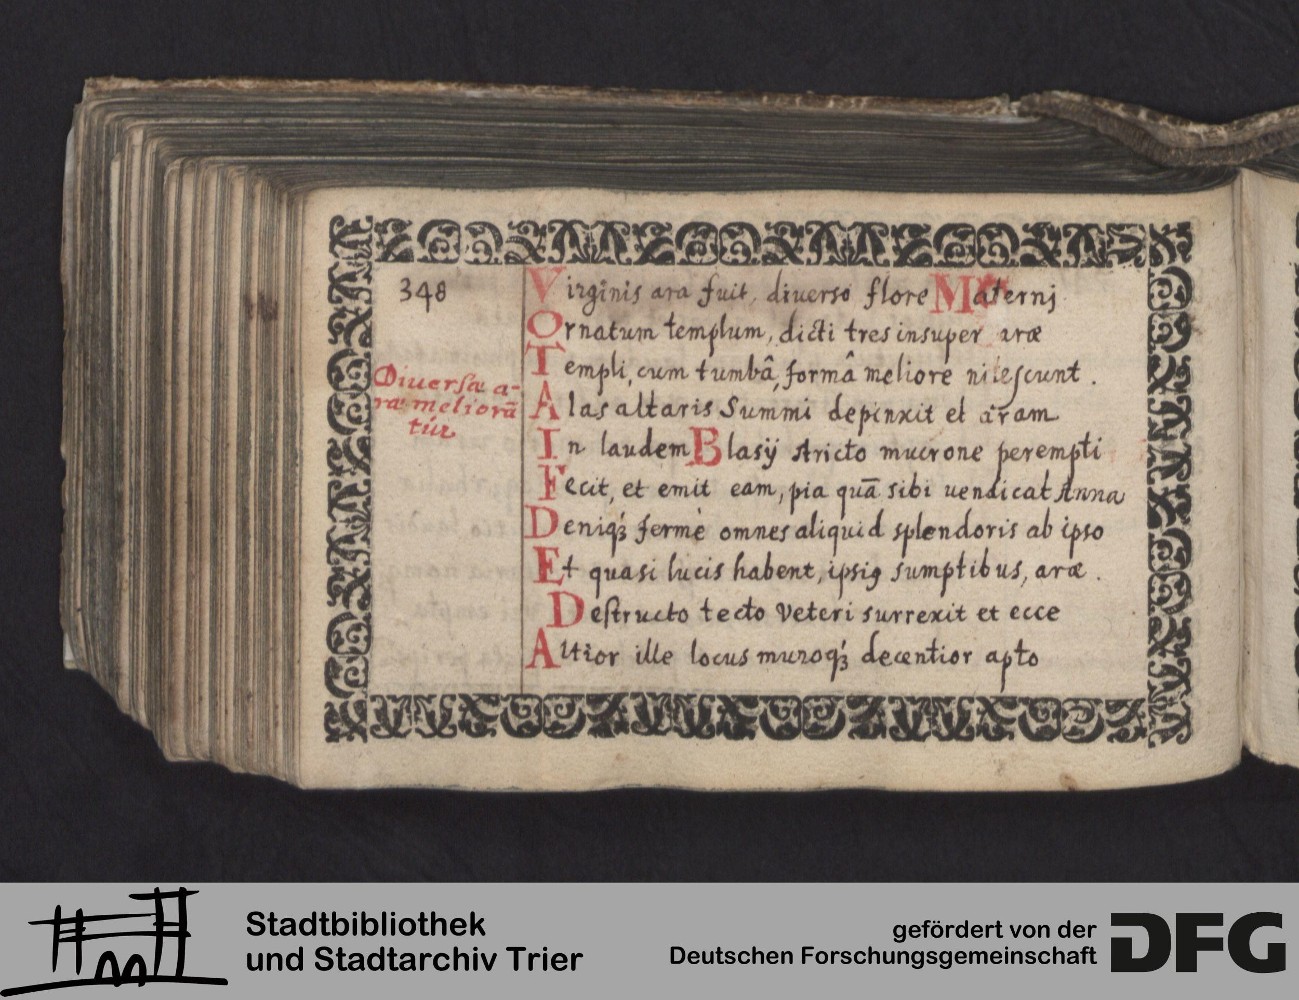 348
Virginis ara fuit, diuerso flore Maternj
Ornatum templum, dicti tres insuper aræ
Templi, cum tumbâ, formâ meliore nitescunt.
Diuersæ a-
ræ meliorā
tur
Alas altaris Summi depinxit et aram
In laudem Blasÿ stricto mucrone perempti
Fecit, et emit eam, pia quā sibi uendicat Anna
Deniqꝫ fermè omnes aliquid splendoris ab ipso
Et quasi lucis habent, ipsiꝰ sumptibus, aræ.
Destructo tecto Veteri surrexit et ecce
Altior ille locus muroqꝫ decentior apto
Stadtbibliothek
und Stadtarchiv Trier
gefördert von der
Deutschen Forschungsgemeinschaft
DFG